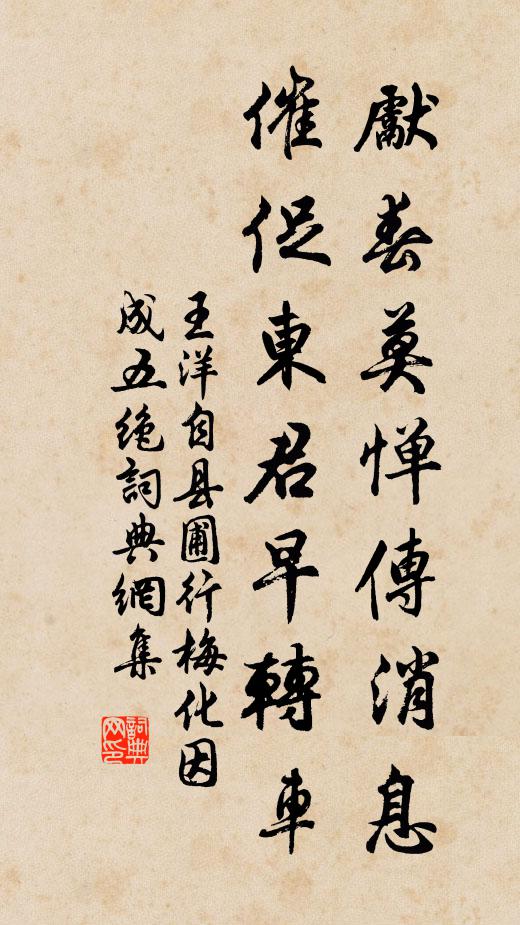 獻春莫憚傳消息
催促東君早轉車
王洋自县圃行梅化因
成五绝詞典網集
詞典网印